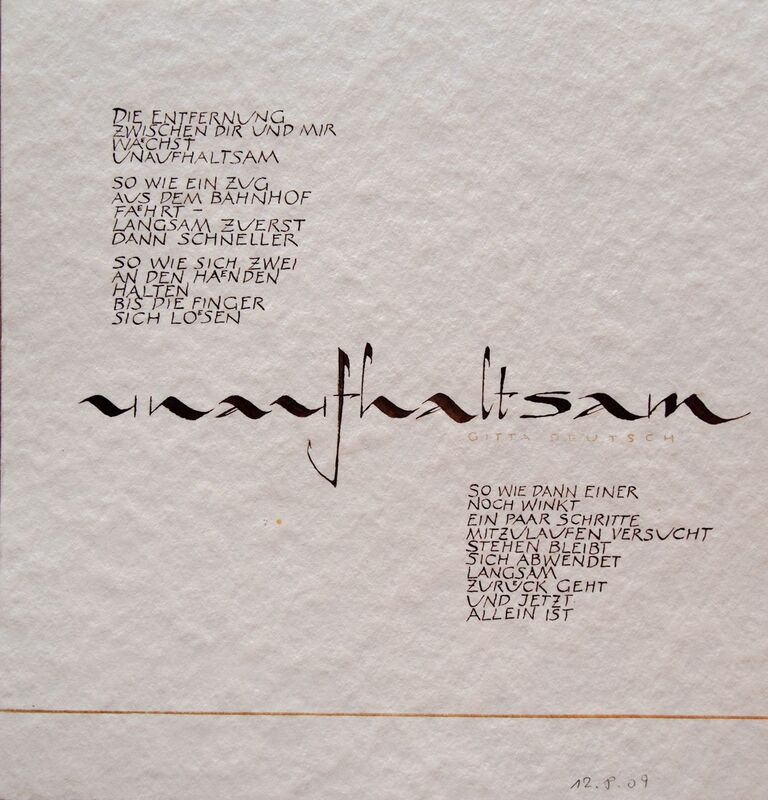 DIE ENTFERNUNG
ZWISCHEN DIR UND MIR
WAeCHST
UNAUFHALTSAM
SO WIE EIN ZUG
AUS DEM BAHNHOF
FAeHRT –
LANGSAM ZUERST
DANN SCHNELLER
SO WIE SICH ZWEI
AN DEN HAeNDEN
HALTEN
BIS DIE FINGER
SICH LOeSEN
unaufhaltsam
GITTA DEUTSCH
SO WIE DANN EINER
NOCH WINKT
EIN PAAR SCHRITTE
MITZULAUFEN VERSUCHT
STEHEN BLEIBT
SICH ABWENDET
LANGSAM
ZURUeCK GEHT
UND JETZT
ALLEIN IST
12.8.09